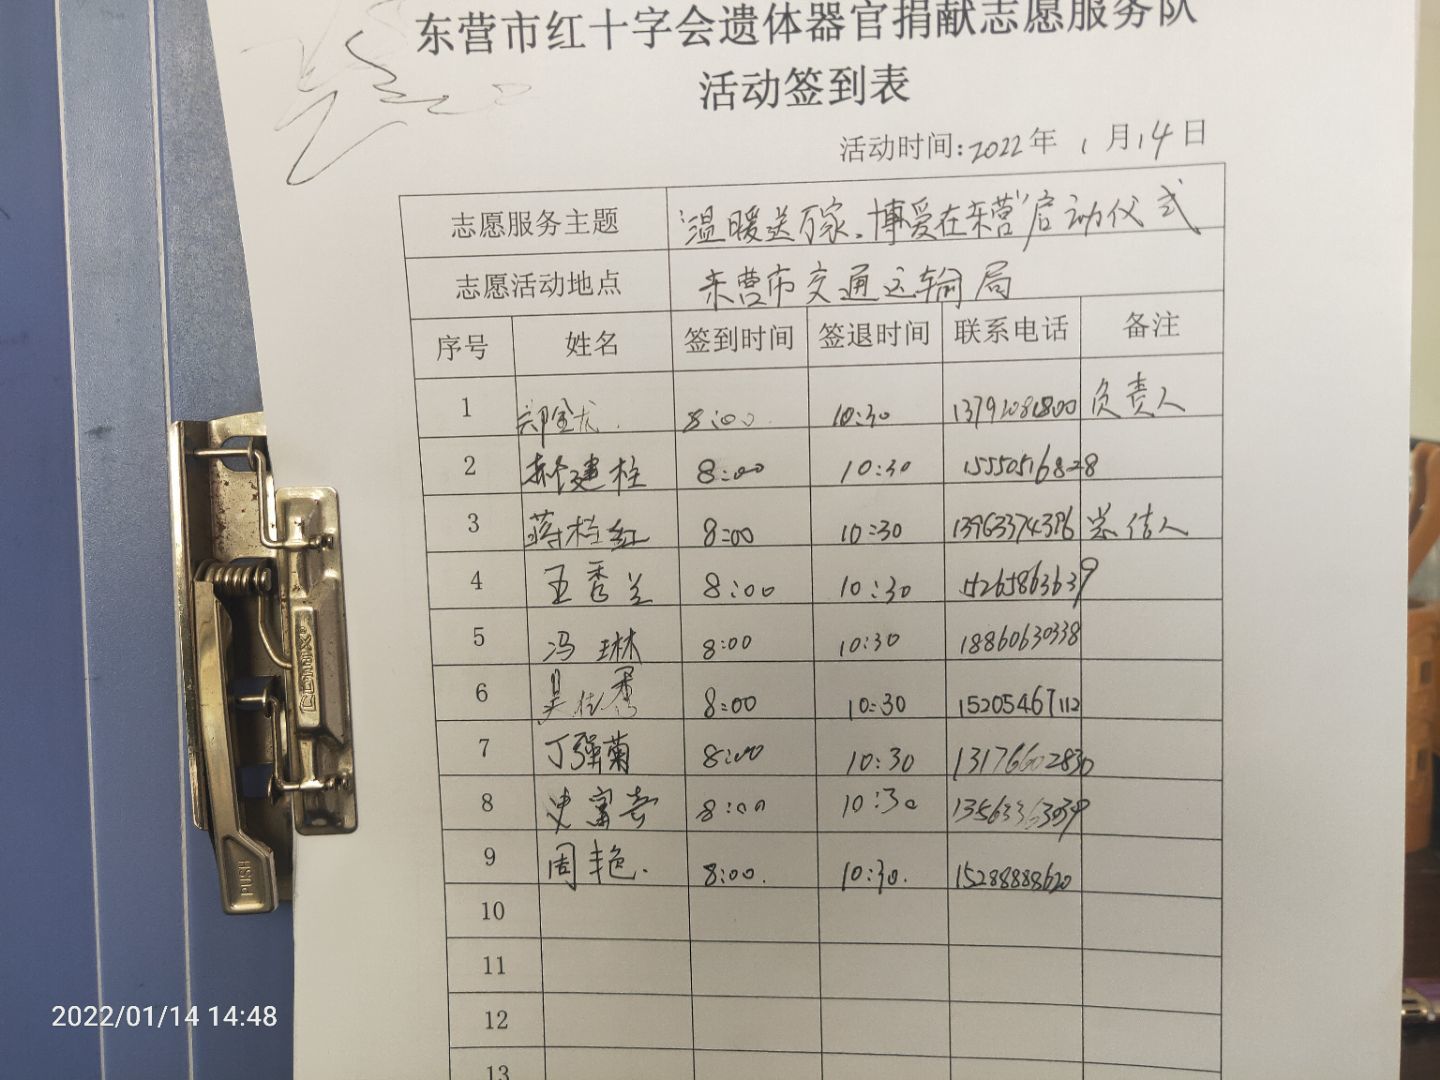 东营市红十字会遗体器官捐献志愿服务队
活动签到表
活动时间:2022年 1 月14日
志愿服务主题 "温暖送万家.博爱在东营"启动仪式
志愿活动地点 东营市交通运输局
序号 姓名 签到时间 签退时间 联系电话 备注
1 8:00 10:30 负责人
2 郝建柱 8:00 10:30 15550516828
3 8:00 10:30 13963374396 总结人
4 王秀兰 8:00 10:30 15265863639
5 冯琳 8:00 10:30 18860630338
6 8:00 10:30 15205467112
7 丁强菊 8:00 10:30 13176602830
8 史富春 8:00 10:30 13563363039
9 周丰艳. 8:00. 10:30. 15288888620
10
11
12
13
PUSH
2022/01/14 14:48